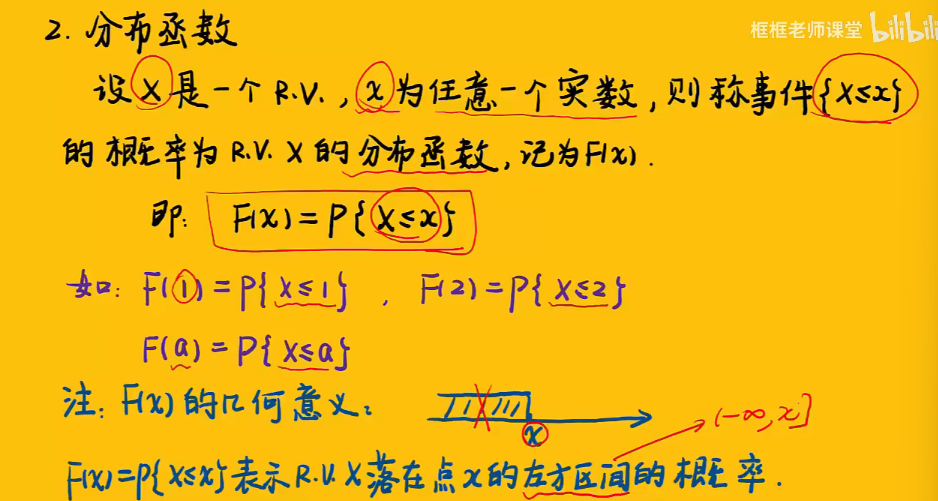 框框老师课堂 bilibili
2. 分布函数
设 X 是一个 R.V., x 为任意一个实数, 则称事件{X≤x}
的概率为 R.V. X 的分布函数, 记为F(x).
即: F(x)=P{X≤x}
如: F(1)=P{X≤1} , F(2)=P{X≤2}
F(a)=P{X≤a}
注: F(x)的几何意义:
X
x
(-∞,x]
F(x)=P{X≤x}表示R.V.X落在点x的左方区间的概率.